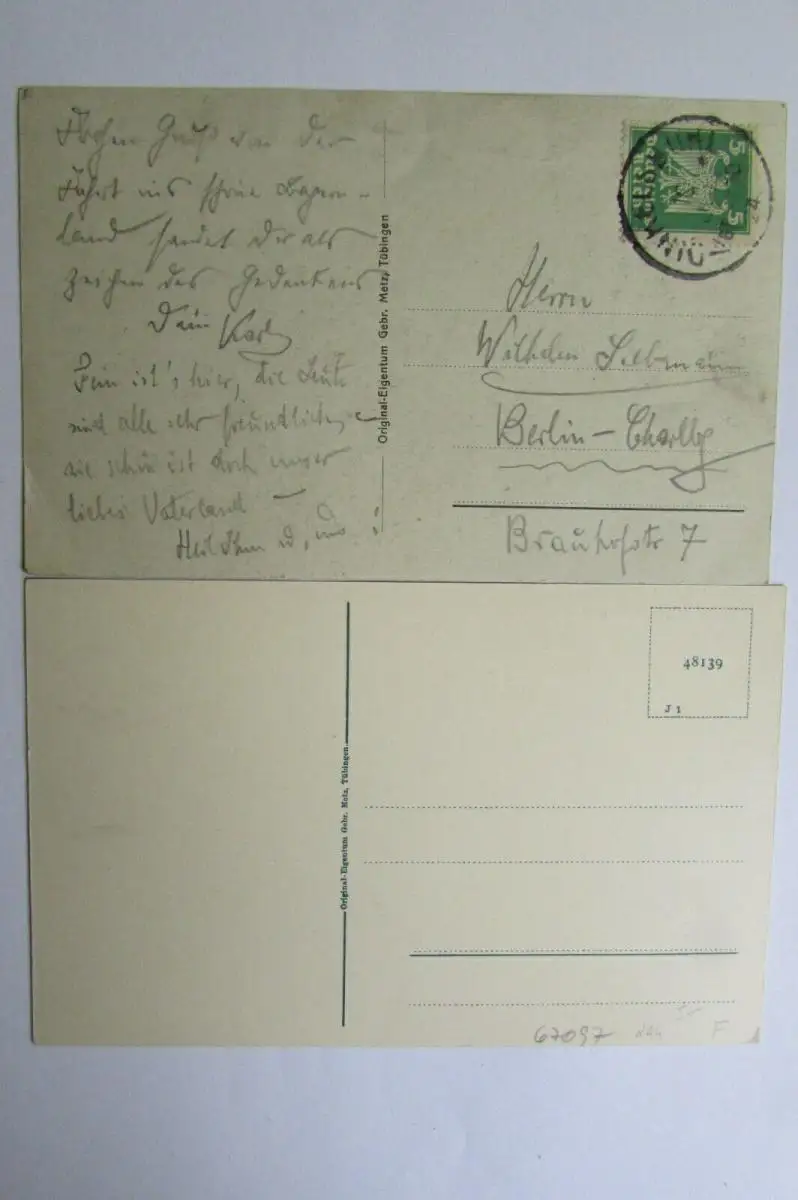 Frohen Gruß von der
Fahrt ins schöne Bayern-
land sendet Dir als
Zeichen des Gedenkens
Dein Karl
Fein ist's hier, die Leute
sind alle sehr freundlich,
wie schön ist doch unser
liebes Vaterland –
Heil
Original-Eigentum Gebr. Metz, Tübingen
5 5
Herrn
Wilhelm
Berlin-Charlbg
Brauhofstr 7
48139
J 1
Original-Eigentum Gebr. Metz, Tübingen
67097
F